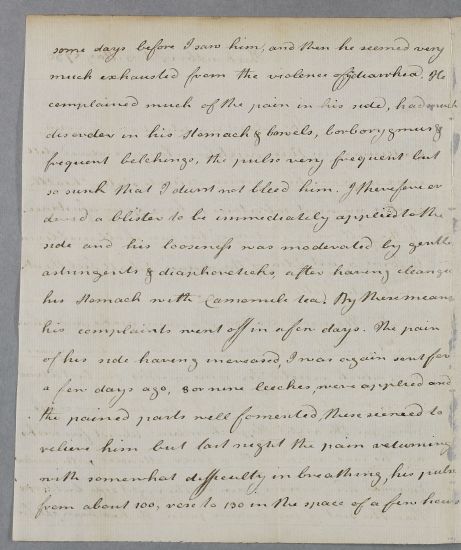 some days before I saw him, and then he seemed very
much exhausted from the violence of ye diarrhea. He
complained much of the pain in his side, had much
disorder in his stomach & bowels, borborygmus &
frequent belchings, the pulse very frequent but
so sunk that I durst not bleed him. I therefore or
dered a blister to be immediately applied to the
side and his looseness was moderated by gentle
astringents & diaphoreticks, after having cleang'd
his stomach with Camomile tea. By these means
his complaints went off in a few days. The pain
of his side having increased, I was again sent for
a few days ago, 8 or nine leeches, were applied and
the pained parts well fomented, these seemed to
relieve him but last night the pain returning
with somewhat difficulty in breathing, his pulse
from about 100, rose to 130 in the space of a few hours